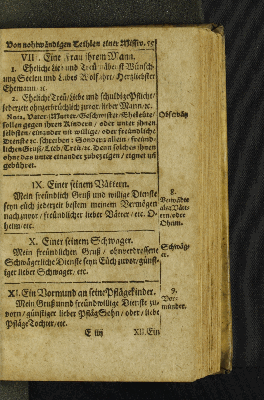 Von nohtwändigen Teihlen einer Missiv. 55
VIII. Eine Frau ihrem Mann.
1. Ehelichẽ Lieb und Treü nähest Wünsch-
ung Seelen und Leibes Wolfahrt/ Hertzliebster
Ehemann. ꝛc.
2. Eheliche Treü/Liebe und schuldige Pflichte/
jederzeit ohngebrüchlich zuvor. lieber Mann/ꝛc.
Nota, Vater/Mutter/Geschwister/Eheleüte/
sollen gegen ihren Kindern/ oder unter sich
selbsten/ einander nit willige/ oder freündliche
Dienste ꝛc. schreiben: Sondern allein/ freünd-
lichen Gruß/Lieb/Treü/ꝛc. Dann solches ihnen
ohne das unter einander zubezeigen/ eignet uñ
gebühret.
Observãtz
IX. Einer seinem Vättern.
Mein freündlich Gruß und willige Dienste
seyn eüch jederzeit bestem meinem Vermögen
nach zuvor/ freündlicher lieber Vätter/ etc. O-
heim/etc.
8.
Verwãdte
als: Vätt-
ern/oder
Oheim.
X. Einer seinem Schwager.
Mein freündlicher Gruß/ ohnverdrossene
Schwägerliche Dienste seyn Eüch zuvor/günst-
iger lieber Schwager/ etc.
Schwäg-
er.
XI. Ein Vormund an seine Pflägekinder.
Mein Gruß unnd freündwillige Dienste zu-
vorn/ günstiger lieber Pfläg Sohn/ oder/ liebe
Pfläge Tochter/ etc.
9.
Vor-
münder.
E iiij
XII. Ein